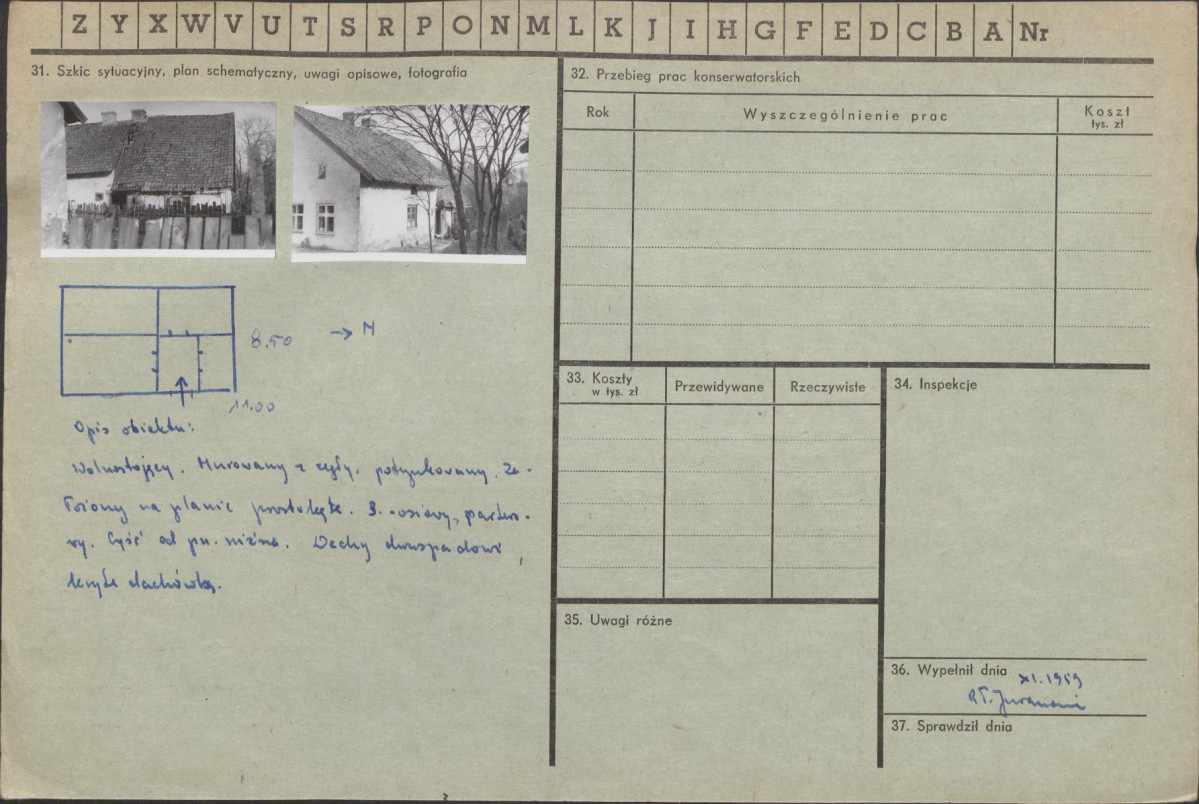 Z Y X W V U T S R P O N M L K J I H G F E D C B A Nr
31. Szkic sytuacyjny, plan schematyczny, uwagi opisowe, fotografia
8.50
→ N
11.00
Opis obiektu:
Wolnostojący. Murowany z cegły, potynkowany. Za-
łożony na planie prostokąta. 3-osiowy, partero-
wy. Część od pn. niższa. Dachy dwuspadowe,
kryte dachówką.
32. Przebieg prac konserwatorskich
Rok
Wyszczególnienie prac
Koszt
tys. zł
33. Koszty
w tys. zł
Przewidywane
Rzeczywiste
34. Inspekcje
35. Uwagi różne
36. Wypełnił dnia XI.1959
37. Sprawdził dnia